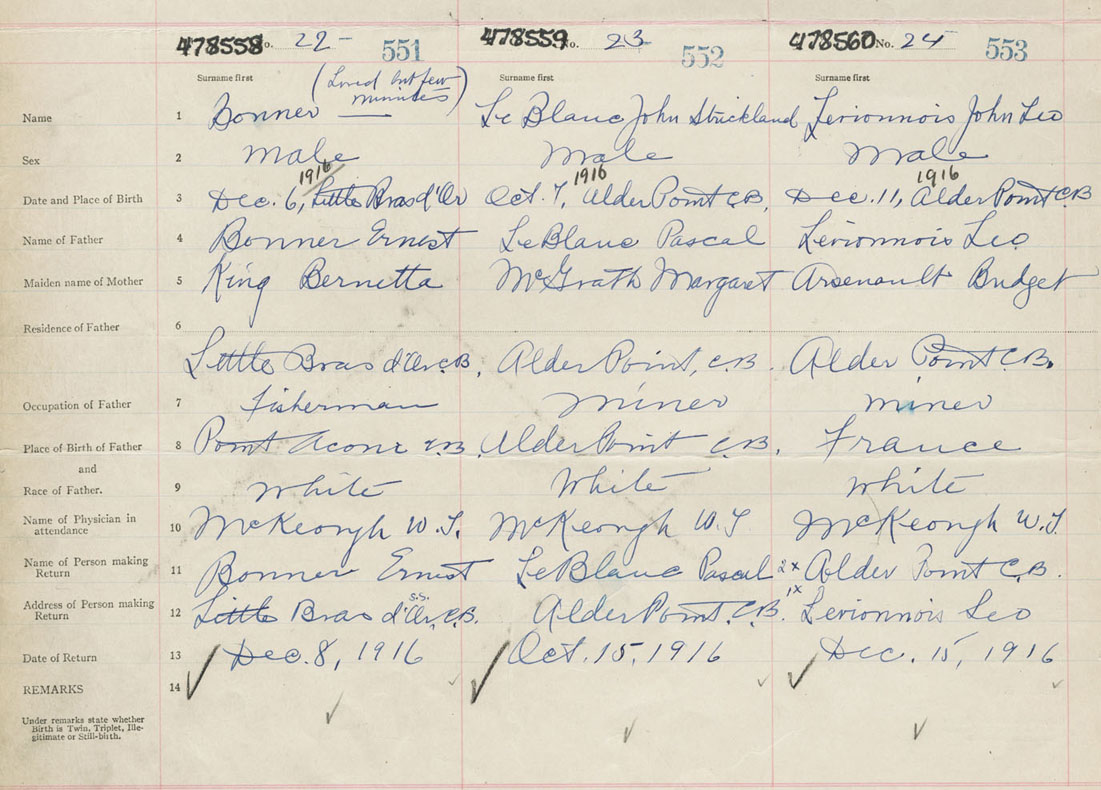 478558 No. 22- 551 478559 No. 23- 552 478560 No. 24- 553
Surname first Surname first Surname first
(Lived but few minutes)
Name 1 Bonner Le Blanc John Strickland Levionnois John Leo
Sex 2 Male Male Male
1916 1916 1916
Date and Place of Birth 3 Dec. 6, Little Bras d'Or Oct. 7, Alder Point C.B. Dec. 11, Alder Point C.B
Name of Father 4 Bonner Ernest LeBlanc Pascal Levionnois Leo
Maiden name of Mother 5 King Bernetta McGrath Margaret Arsenault Bridget
Residence of Father 6
Little Bras d'Or C.B, Alder Point, C.B. Alder Point C.B.
Occupation of Father 7 Fisherman Miner Miner
Place of Birth of Father 8 Point Aconi C.B. Alder Point C.B. France
and
Race of Father. 9 White White White
Name of Physician in
attendance 10 McKeough W. J. McKeough W. J McKeough W. J.
Name of Person making
Return 11 Bonner Ernest LeBlanc Pascal 2x Alder Point C.B.
s.s. 1x
Address of Person making
Return 12 Little Bras d'Or, C.B. Alder Point, C.B. Levionnois Leo
Date of Return 13 Dec. 8, 1916 Oct. 15, 1916 Dec. 15, 1916
REMARKS 14
Under remarks state whether
Birth is Twin, Triplet, Ille-
gitimate or Still-birth.